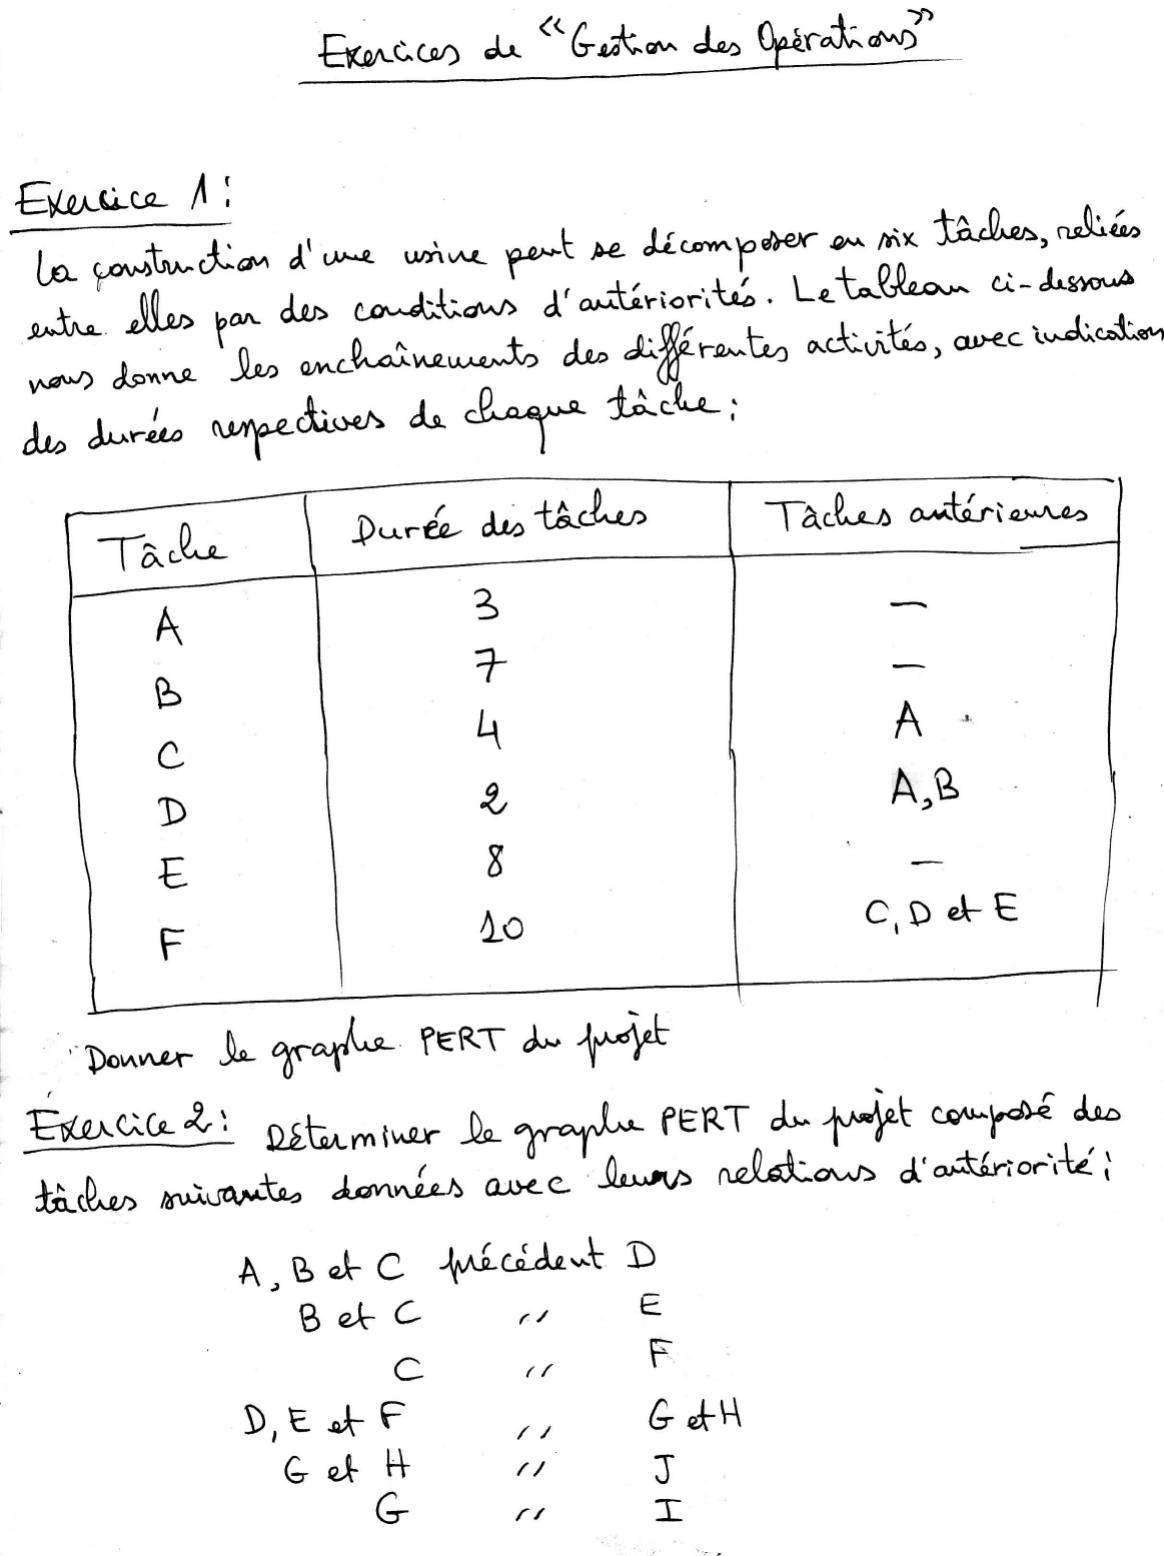 Exercices de "Gestion des Opérations"
Exercice 1:
La construction d'une usine peut se décomposer en six tâches, reliées
entre elles par des conditions d'antériorités. Le tableau ci-dessous
nous donne les enchaînements des différentes activités, avec indication
des durées respectives de chaque tâche:
Tâche Durée des tâches Tâches antérieures
A 3 —
B 7 —
C 4 A
D 2 A, B
E 8 —
F 10 C, D et E
Donner le graphe PERT du projet
Exercice 2: Déterminer le graphe PERT du projet composé des
tâches suivantes données avec leurs relations d'antériorité:
A, B et C précédent D
B et C '' E
C '' F
D, E et F '' G et H
G et H '' J
G '' I